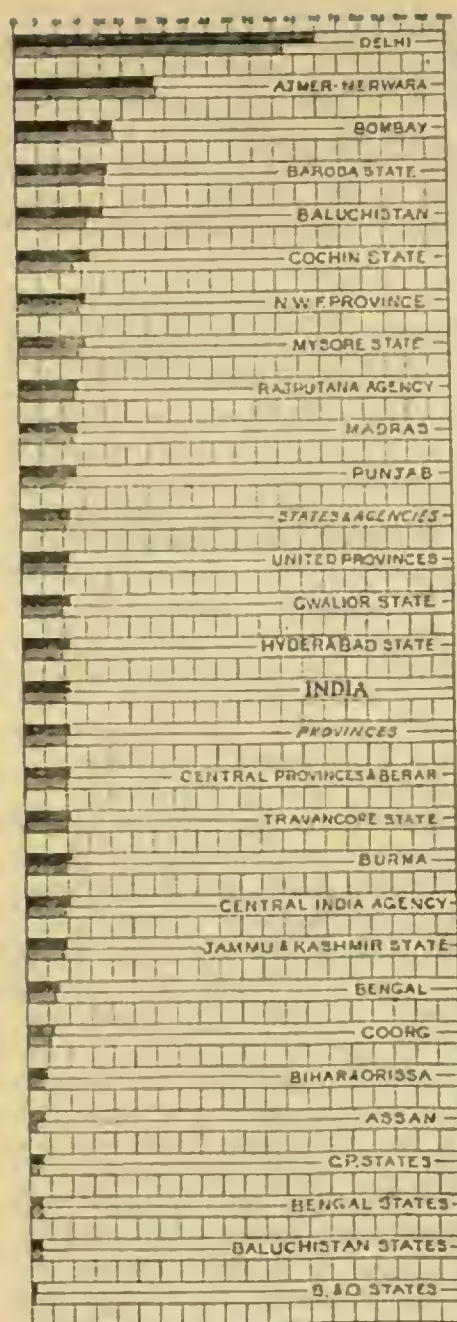 DELHI
AJMER-MERWARA
BOMBAY
BARODA STATE
BALUCHISTAN
COCHIN STATE
N.W.F. PROVINCE
MYSORE STATE
RAJPUTANA AGENCY
MADRAS
PUNJAB
STATES & AGENCIES
UNITED PROVINCES
GWALIOR STATE
HYDERABAD STATE
INDIA
PROVINCES
CENTRAL PROVINCES & BERAR
TRAVANCORE STATE
BURMA
CENTRAL INDIA AGENCY
JAMMU & KASHMIR STATE
BENGAL
COORG
BIHAR & ORISSA
ASSAM
C.P. STATES
BENGAL STATES
BALUCHISTAN STATES
B. & O. STATES